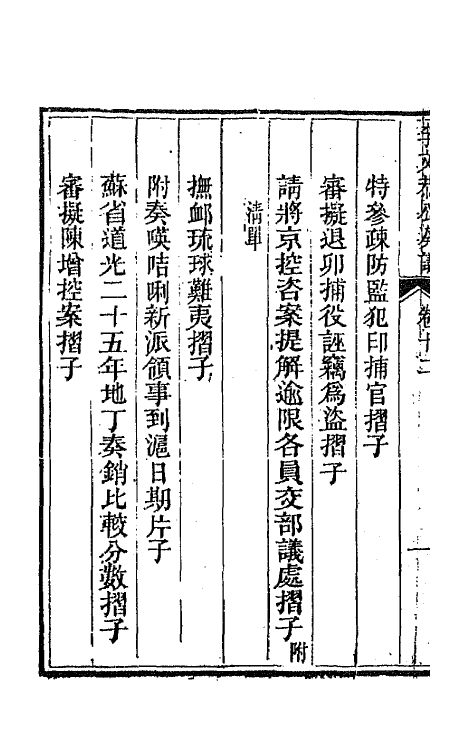 李文恭公奏議 卷十二
特參疎防監犯印捕官摺子
審擬退卯捕役誣竊為盜摺子
請將京控咨案提解逾限各員交部議處摺子附
清單
撫卹琉球難夷摺子
附奏㗎咭唎新派領事到滬日期片子
蘇省道光二十五年地丁奏銷比較分數摺子
審擬陳增控案摺子